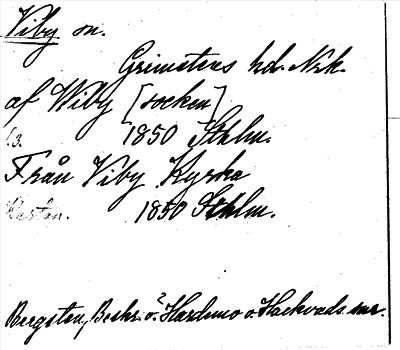 Viby sn.
Grimstens hd. Nrk.
af Wiby [socken]
1850 Sthlm.
Från Viby Kyrka
1850 Sthlm.
Bergsten, Beskr. ö. Hardemo o. Hackvads snr.